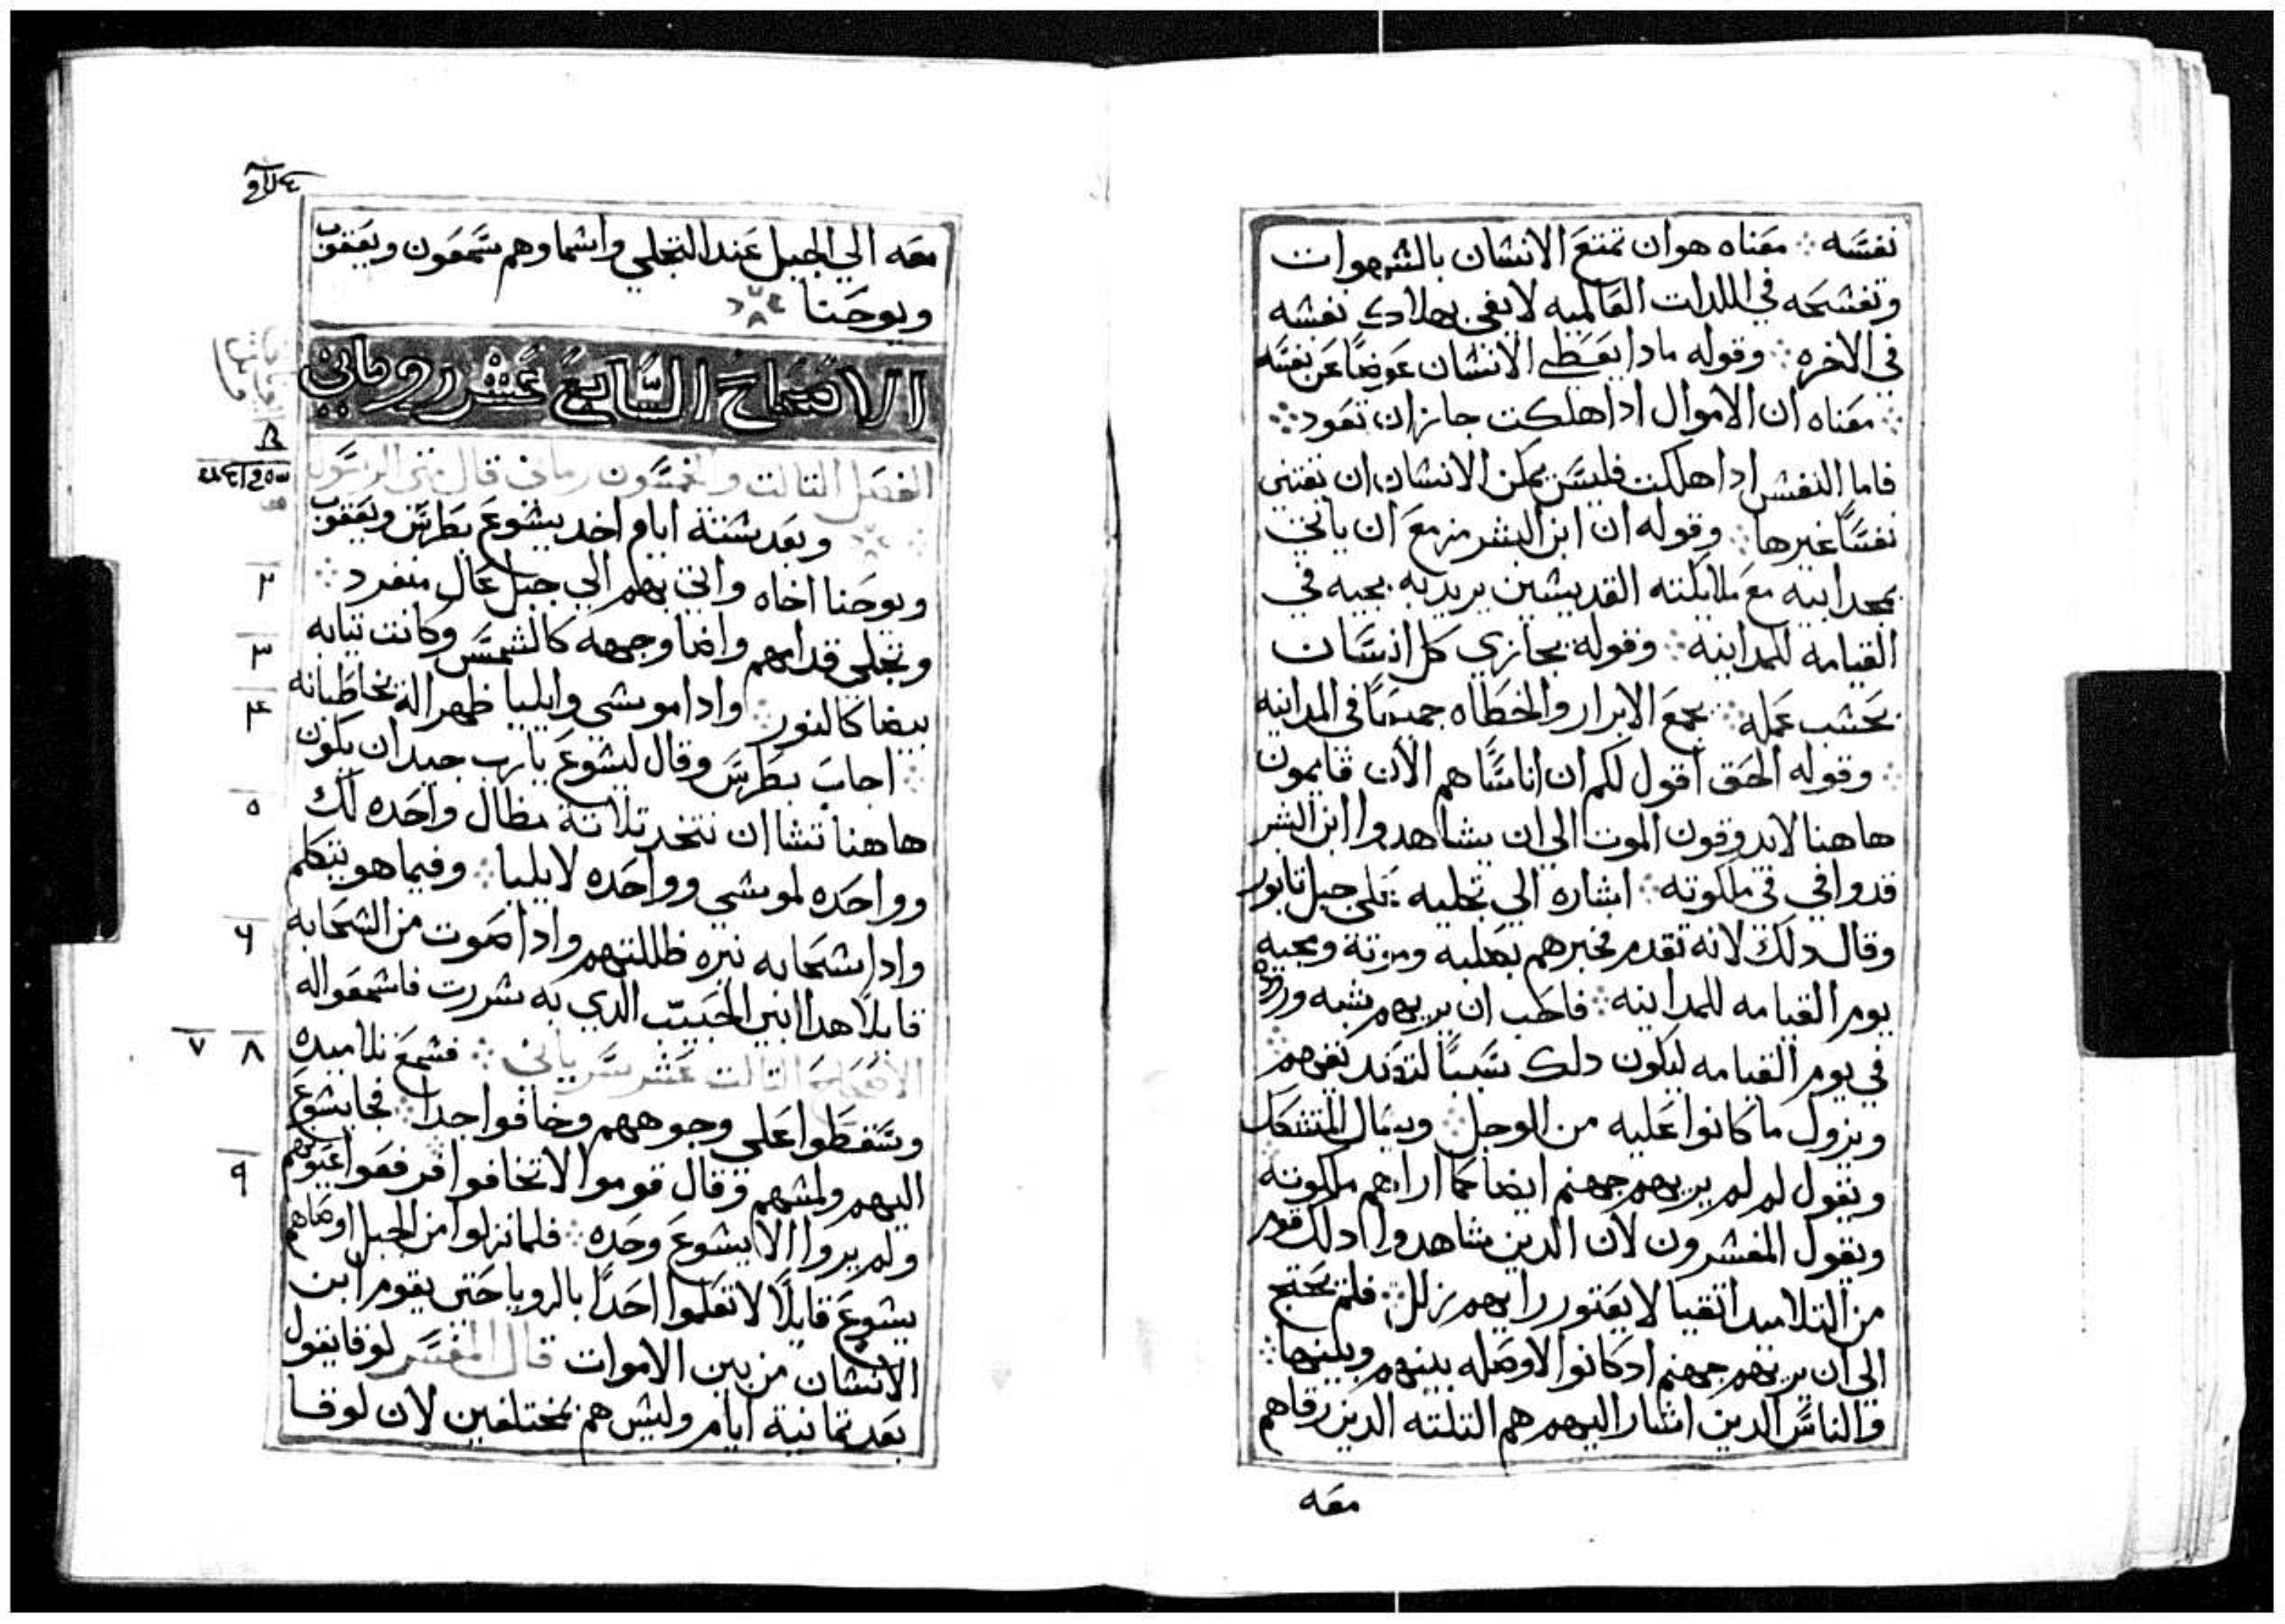 نفسه ܀ معناه هو ان تمتع الانسان بالشهوات
وتفسحه في اللدات العالميه لا يفي بهلاك نفسه
في الاخره ܀ وقوله مادا يعطي الانسان عوضًا عن نفسه
܀ معناه ان الاموال ادا هلكت جاز ان تعود ܀
فاما النفس ادا هلكت فليس يمكن الانسان ان يقتني
نفسًا غيرها ܀ وقوله ان ابن البشر مزمع ان ياتي
بمجد ابيه مع ملايكته القديسين يريد به مجيه في
القيامه للمداينه ܀ وقوله يجازي كل انسان
بحسب عمله ܀ يجمع الابرار والخطاه جميعًا في المداينه
܀ وقوله الحق اقول لكم ان اناسًا هم الان قايمون
هاهنا لا يدوقون الموت الي ان يشاهدوا ابن البشر
قد وافي في ملكوته ܀ اشاره الي تجليه علي جبل تابور
وقال دلك لانه تقدم فخبرهم بصلبه وموته ومجيه
يوم القيامه للمداينه ܀ فاحب ان يريهم شبه وروده
في يوم القيامه ليكون دلك سببًا لتوكيد يقينهم
ويزول ما كانوا عليه من الوجل ܀ ويسال المتشكك
ويقول لم لم يريهم جهنم ايضًا كما اراهم ملكوته
ويقول المفسرون لان الدين شاهدوا دلك قوم
من التلاميد اتقيا لا يعتور رايهم زلل ܀ فلم يحتج
الي ان يريهم جهنم ادكانوا لا وصله بينهم وبينها ܀
والناس الدين اشار اليهم هم التلته الدين رقاهم
معه
معه الي الجبل عند التجلي واسماوهم سمعون ويعقوب
ويوحنا
الاصحاح السابع عشر روماني
الفصل التالت والخمسون رماني قال متي الرسول
وبعد ستة ايام اخد يسوع بطرس ويعقوب
ويوحنا اخاه واتي بهم الي جبل عال منفرد ܀
٢
وتجلي قدامهم واضا وجهه كالشمس وكانت تيابه
٣
بيضا كالنور ܀ وادا موسي وايليا ظهرا له يخاطبانه
۴
܀ اجاب بطرس وقال ليسوع يارب جيد ان يكون
هاهنا تشا ان نتخد تلاتة مظال واحده لك
٥
وواحده لموسي وواحده لايليا ܀ وفيما هو يتكلم
وادا سحابه نيره ظللتهم وادا صوت من السحابه
۶
قايلاً هدا ابني الحبيب الدي به سررت فاسمعوا له
الاصحاح التالت عشر سرياني ܀ فسمع تلاميده
٧ ٨
وسقطوا علي وجوههم وخافوا جدا ܀ فجا يسوع
اليهم ولمسهم وقال قوموا لا تخافوا فرفعوا عيونهم
٩
ولم يروا الا يسوع وحده ܀ فلما نزلوا من الجبل اوصاهم
يسوع قايلاً لا تعلموا احدًا بالرويا حتي يقوم ابن
الانسان من بين الاموات قال المفسر لوقا يقول
بعد تمانية ايام وليس هم مختلفين لان لوقا